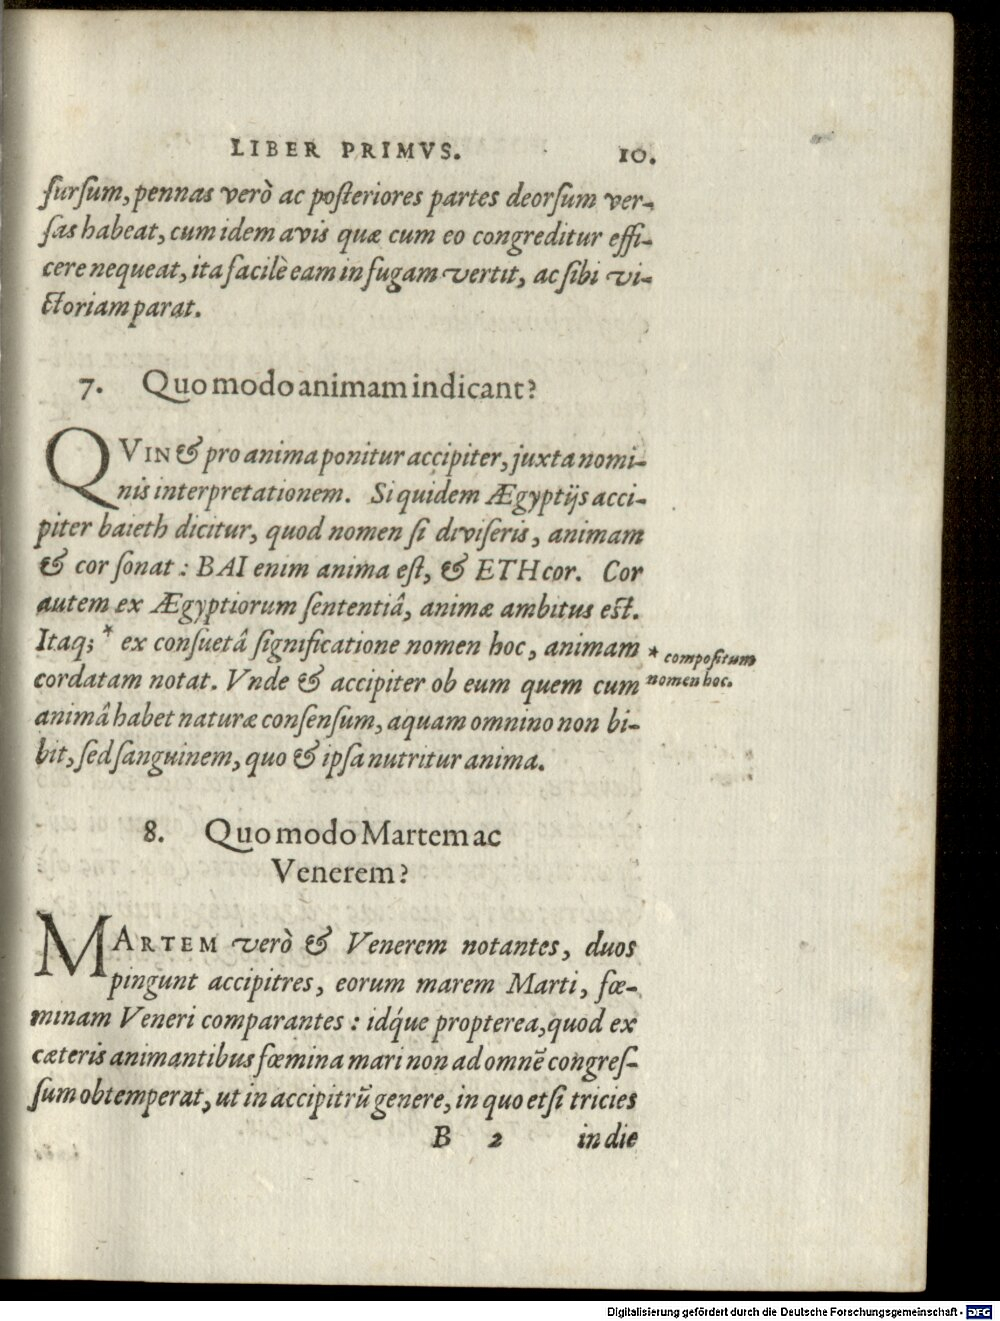 LIBER PRIMVS. 10.
ſurſum, pennas verò ac poſteriores partes deorſum ver-
ſas habeat, cum idem avis quæ cum eo congreditur effi-
cere nequeat, ita facilè eam in fugam vertit, ac ſibi vi-
ctoriam parat.
7. Quomodo animam indicant?
QVIN & pro anima ponitur accipiter, juxta nomi-
nis interpretationem. Siquidem Ægyptijs acci-
piter baieth dicitur, quod nomen ſi diviſeris, animam
& cor ſonat: BAI enim anima eſt, & ETH cor. Cor
autem ex Ægyptiorum ſententiâ, animæ ambitus est.
Itaq; * ex conſuetâ ſignificatione nomen hoc, animam
* compoſitum
cordatam notat. Vnde & accipiter ob eum quem cum
nomen hoc.
animâ habet naturæ conſenſum, aquam omnino non bi-
bit, ſed ſanguinem, quo & ipſa nutritur anima.
8. Quomodo Martem ac
Venerem?
MARTEM verò & Venerem notantes, duos
pingunt accipitres, eorum marem Marti, fœ-
minam Veneri comparantes: idq́ue propterea, quod ex
cæteris animantibus fœmina mari non ad omnẽ congreſ-
ſum obtemperat, ut in accipitrũ genere, in quo etſi tricies
B 2 in die
Digitalisierung gefördert durch die Deutsche Forschungsgemeinschaft - DFG